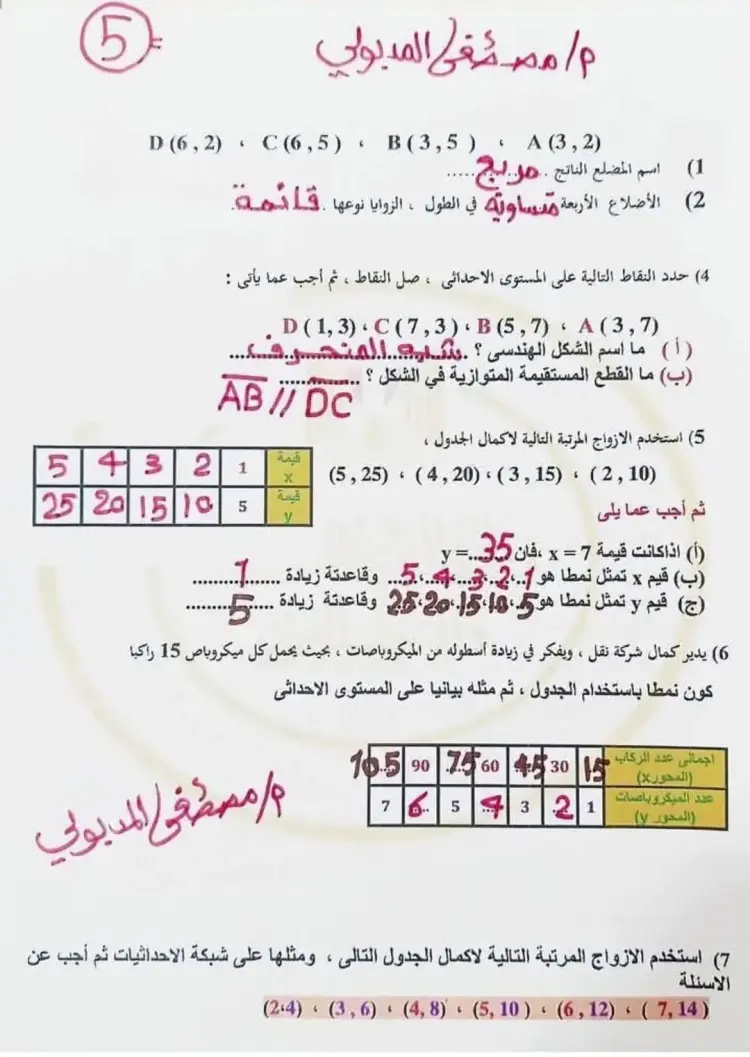 5
م/ مصطفى المدبولي
A (3 , 2) ، B ( 3 , 5 ) ، C (6 , 5 ) ، D (6 , 2)
1) اسم المضلع الناتج ..مربع.....
2) الأضلاع الأربعة متساوية في الطول ، الزوايا نوعها .قائمة.
4) حدد النقاط التالية على المستوى الاحداثى ، صل النقاط ، ثم أجب عما يأتى :
A ( 3 , 7) ، B (5 , 7) ، C ( 7 , 3 ) ، D ( 1, 3)
(أ) ما اسم الشكل الهندسى ؟ .شبه المنحرف...
(ب) ما القطع المستقيمة المتوازية في الشكل ؟ ..............
AB // DC
5) استخدم الازواج المرتبة التالية لاكمال الجدول ،
(2 , 10) ، (3 , 15) ، (4 , 20) ، (5 , 25)
قيمة x 1 2 3 4 5
قيمة y 5 10 15 20 25
ثم أجب عما يلى
(أ) اذاكانت قيمة x = 7 ،فان y =...35
(ب) قيم x تمثل نمطا هو 1، 2، 3، 4، 5... وقاعدتة زيادة ....1....
(ج) قيم y تمثل نمطا هو 5، 10، 15، 20، 25 وقاعدتة زيادة ....5....
6) يدير كمال شركة نقل ، ويفكر في زيادة أسطوله من الميكروباصات ، بحيث يحمل كل ميكروباص 15 راكبا
كون نمطا باستخدام الجدول ، ثم مثله بيانيا على المستوى الاحداثى
اجمالى عدد الركاب (المحورx) 15 30 45 60 75 90 105
عدد الميكروباصات (المحور y) 1 2 3 4 5 6 7
م/ مصطفى المدبولي
7) استخدم الازواج المرتبة التالية لاكمال الجدول التالى ، ومثلها على شبكة الاحداثيات ثم أجب عن
الاسئلة
( 7, 14 ) ، (6 , 12) ، (5, 10 ) ، (4, 8) ، (3 , 6) ، (2،4)